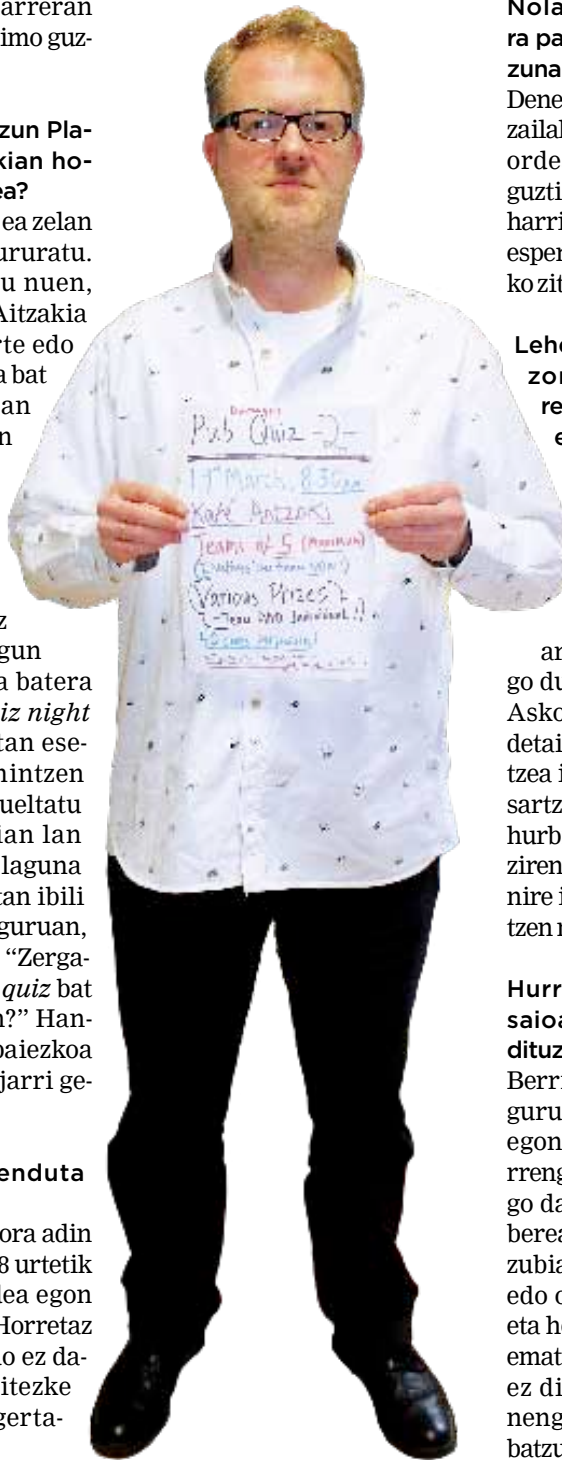 arreran
imo guz-
zun Pla-
kian ho-
ea?
ea zelan
ururatu.
u nuen,
Aitzakia
rte edo
a bat
an
n
z
gun
a batera
iz night
tan ese-
nintzen
ueltatu
ian lan
laguna
tan ibili
guruan,
“Zerga-
quiz bat
n?” Han-
baiezkoa
jarri ge-
enduta
ora adin
8 urtetik
dea egon
Horretaz
o ez da-
itezke
gerta-
Pub Quiz -2-
March, 8:30pm
Kafe Antzoki
Teams of 5 (Maximum)
Various Prizes
Nola
ra pa
zuna
Dene
zaila
orde
guzti
harri
esper
ko zit
Lehe
zor
re
e
ar
go du
Asko
detai
tzea i
sartz
hurb
ziren
nire i
tzen n
Hurr
saioa
dituz
Berri
guru
egon
rreng
go da
berea
zubia
edo o
eta he
emat
ez di
neng
batzu